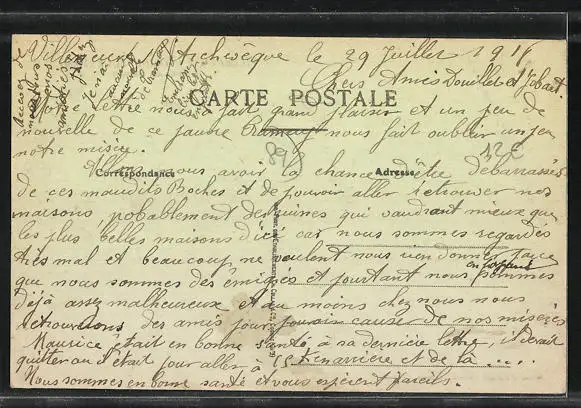 Villeneuve l'Archevêque le 29 Juillet 1918
Chers Amis Douillet et Jobart
CARTE POSTALE
Votre lettre nous a fait grand plaisir et un peu de
nouvelle de ce jaune nous fait oublier un peu
notre misère.
89
32€
Correspondance
Adresse
Allons nous avoir la chance d'être débarrassés
de ces maudits Boches et de pouvoir aller retrouver nos
maisons, pobablement des ruines qui vaudrant mieux que
les plus belles maisons d'ici car nous sommes regardés
très mal et beaucoup ne veulent nous rien donner parce
que nous sommes des émigrés et pourtant nous sommes
en français
déjà assez malheureux et au moins chez nous nous
retrouvions des amis pour pouvoir causer de nos misères
Maurice était en bonne santé, à sa dernière lettre, il devait
quitter ou il était pour aller à 15 K en arrière et de là ....
Nous sommes en bonne santé et vous espérent pareils.